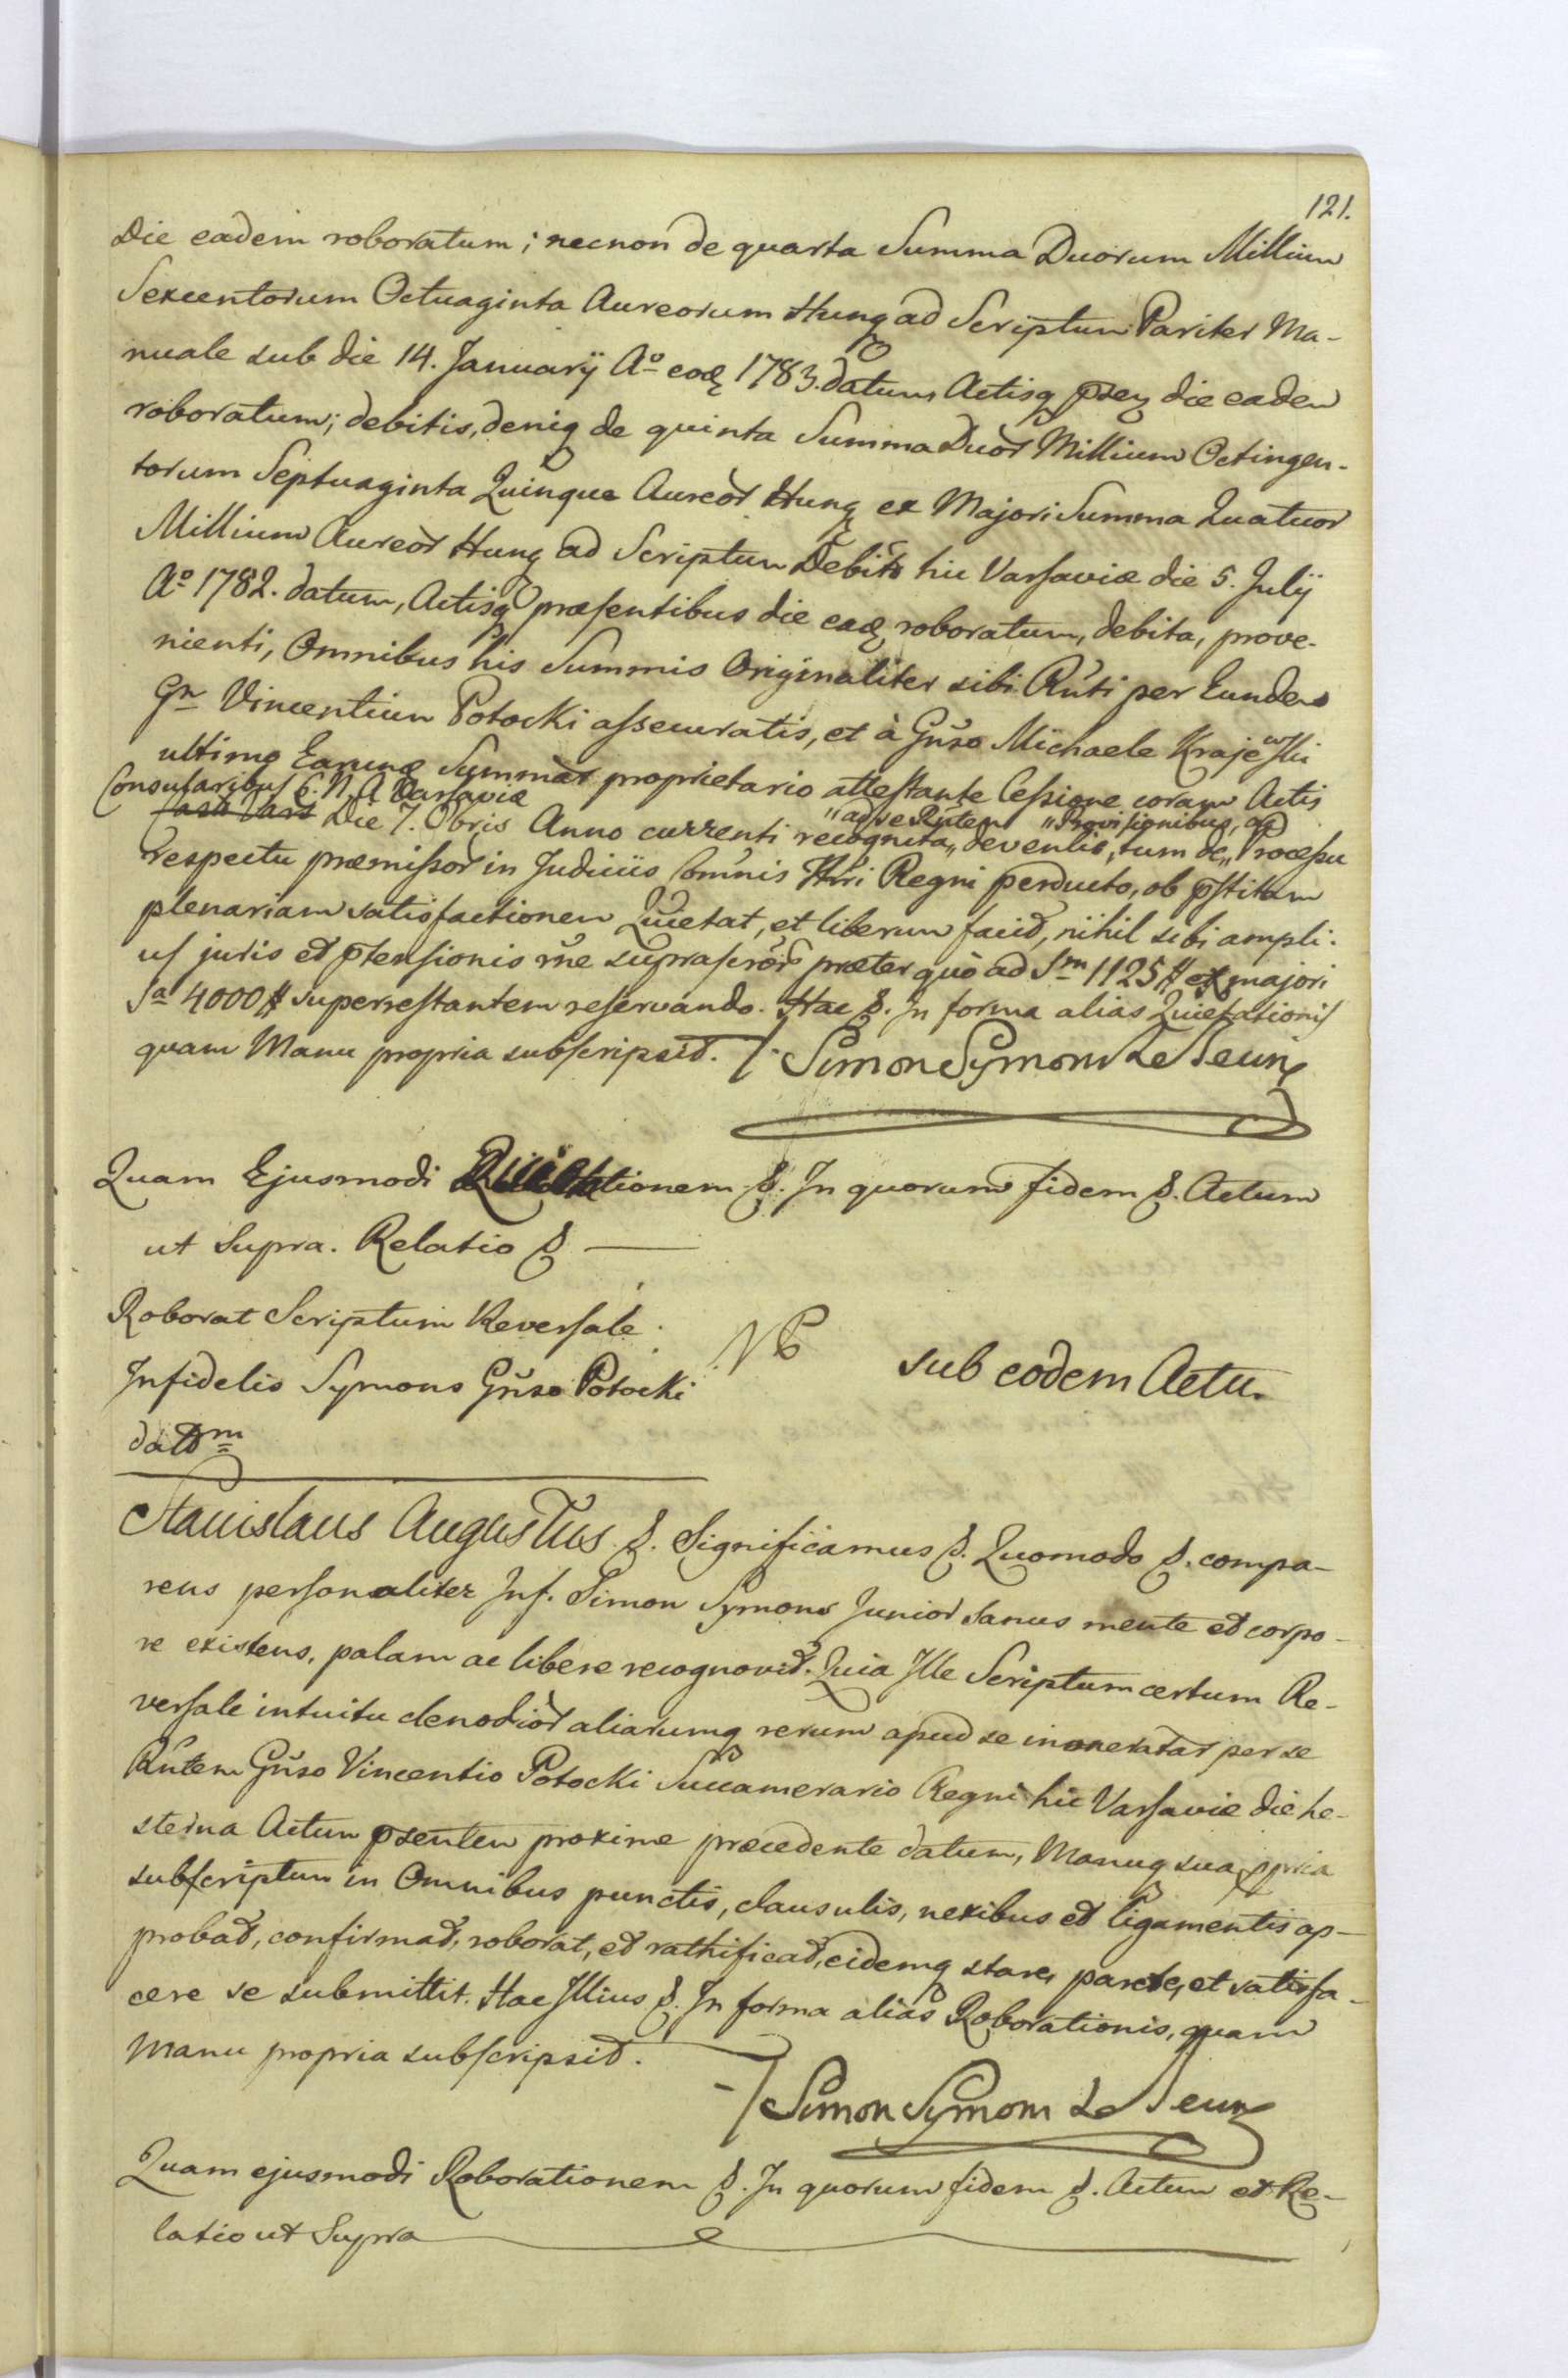 121.
Die eadem roboratum; necnon de quarta Summa Duorum Millium
Sexcentorum Octuaginta Aureorum Hung ad Scriptum Pariter Ma-
nuale sub die 14. Januarÿ Aº eoð 1783. datum Actisq pseñ die eadem
roboratum; debitis, deniq de quinta Summa Duor Millium Octingen-
torum Septuaginta Quinque Aureor Hung ex Majori Summa Quatuor
Millium Aureor Hung ad Scriptum Debiti hic Varsaviæ die 5. Julÿ
Aº 1782. datum, Actisq præsentibus die eað roboratum, debita, prove-
nienti, Omnibus his Summis Originaliter sibi Rnti per Eundem
Gn Vincentium Potocki assecuratis, et à Gnso Michaele Krajewski
ultimo Earunð Summar proprietario attestante Cessione coram Actis
Consularibus C. N. A. Varsaviæ
Die 7. Obris Anno currenti recognita „ad se Rntem devenlis, tum de „Provisionibus, ac Processu
respectu præmissor in Judiciis Comnis Ahri Regni perducto, ob pstitam
plenariam satisfactionem Quietat, et liberum facit, nihil sibi ampli-
us juris et ptensionis rne suprascror præter quò ad Sm 1125 # ex majori
Sa 4000 # superrestantem reservando. Hac &. In forma alias Quietationis
quam Manu propria subscripsit. Simon Symons Le Jeune
Quam Ejusmodi Quietationem &. In quorum fidem &. Actum
ut Supra. Relatio &
Roborat Scriptum Reversale
Infidelis Symons Gnso Potocki
datum
NB
sub eodem Actu.
Stanislaus Augustus &. Significamus &. Quomodo &. compa-
rens personaliter Inf. Simon Symons Junior sanus mente et corpo-
re existens, palam ac libere recognovit. Quia Ille Scriptum certum Re-
versale intuitu clenodior aliarumq rerum apud se inoneratar per se
Rntem Gnso Vincentio Potocki Succamerario Regni hic Varsaviæ die he-
sterna Actum psentem proxime præcedente datum, Manuq sua ppria
subscriptum in Omnibus punctis, clausulis, nexibus et ligamentis ap-
probat, confirmat, roborat, et rathificat, eidemq stare, parere, et satisfa-
cere se submittit. Hac Illius &. In forma alias Roborationis, quam
Manu propria subscripsit.
Simon Symons Le Jeune
Quam ejusmodi Roborationem &. In quorum fidem &. Actum et Re-
latio ut Supra